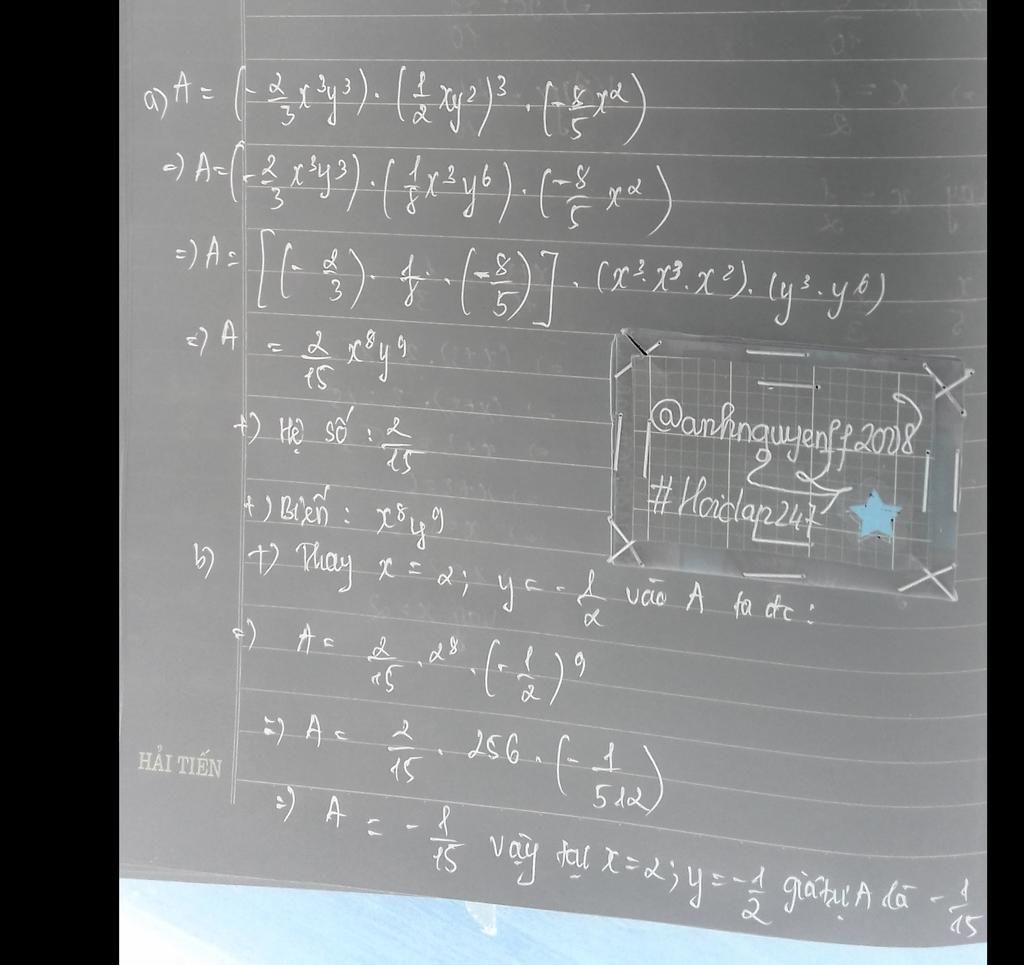 a) A = (-2/3 x³y³) · (1/2 xy²)³ · (-8/5 x²)
=) A = (-2/3 x³y³) · (1/8 x³y⁶) · (-8/5 x²)
=) A = [(-2/3) · 1/8 · (-8/5)] · (x³ · x³ · x²) · (y³ · y⁶)
=) A = 2/15 x⁸y⁹
+) Hệ số : 2/15
+) Biến : x⁸y⁹
@anhnguyenff2008
#Hoidap247
b) +) Thay x = 2; y = -1/2 vào A ta đc :
=) A = 2/15 · 2⁸ · (-1/2)⁹
=) A = 2/15 · 256 · (-1/512)
=) A = -1/15 vậy tại x = 2; y = -1/2 giá trị A là -1/15
HẢI TIẾN